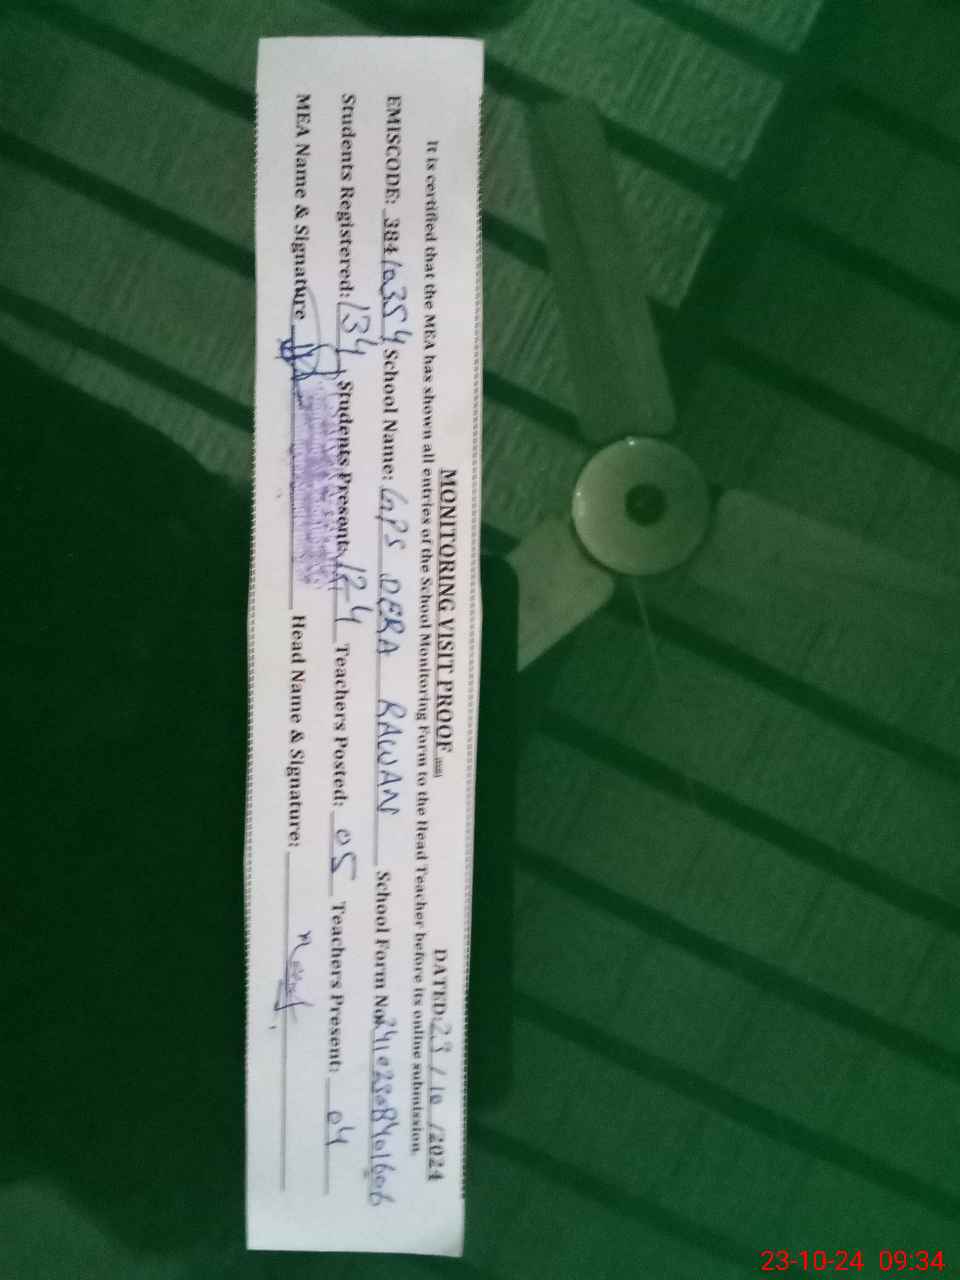 MONITORING VISIT PROOF
DATED: 23 / 10 /2024
It is certified that the MEA has shown all entries of the School Monitoring Form to the Head Teacher before its online submission.
EMISCODE: 38410354 School Name: GPS DERA RAWAN School Form No: 24102308401606
Students Registered: 134 Students Present: 124 Teachers Posted: 05 Teachers Present: 04
MEA Name & Signature Head Name & Signature:
23-10-24 09:34